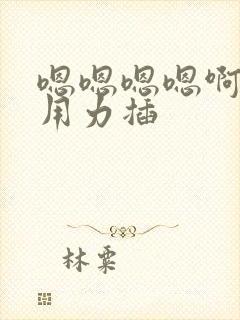 嗯嗯嗯嗯啊
用力插
林粟